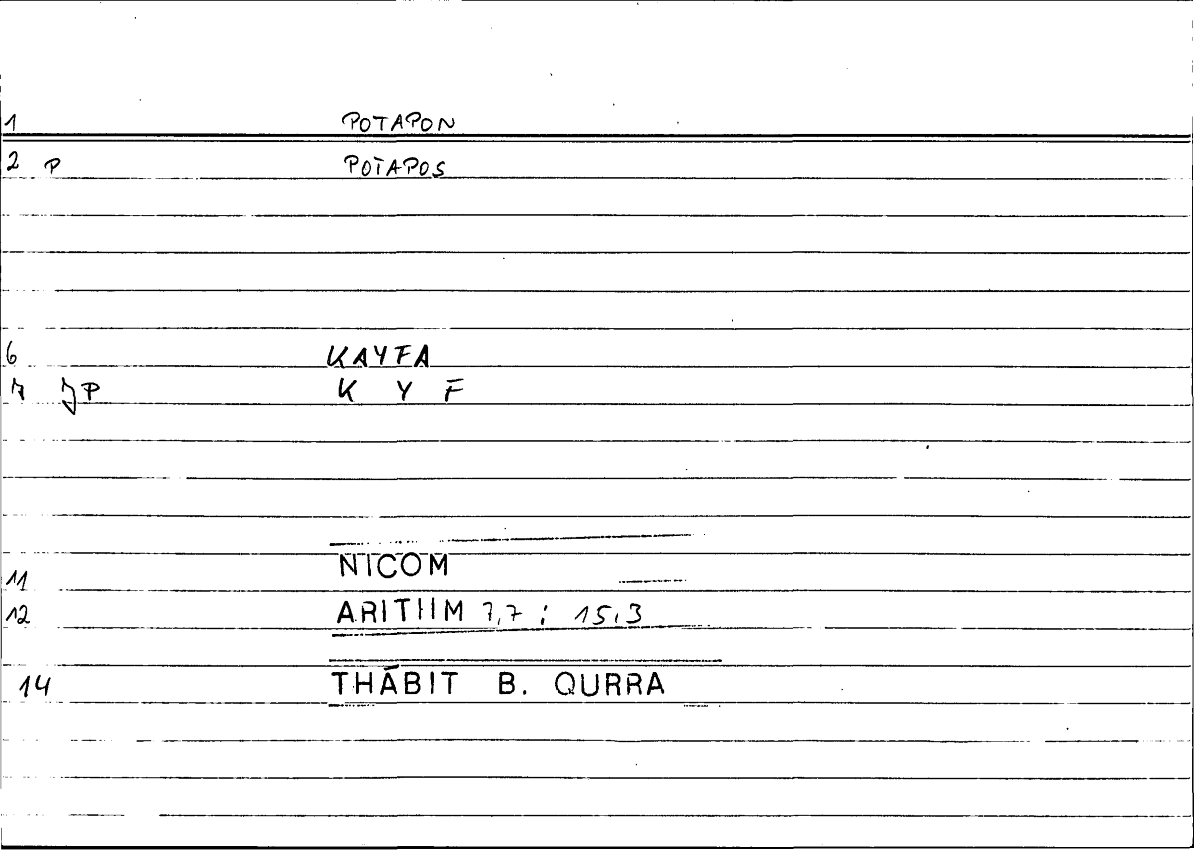 1 POTAPON
2 P POTAPOS
6 KAYFA
7 JP K Y F
11 NICOM
12 ARITHM 7,7 ; 15,3
14 THĀBIT B. QURRA